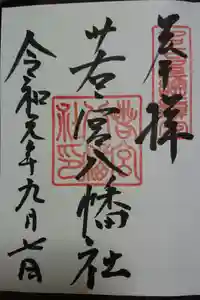 奉拝
若宮八幡社
令和元年九月七日